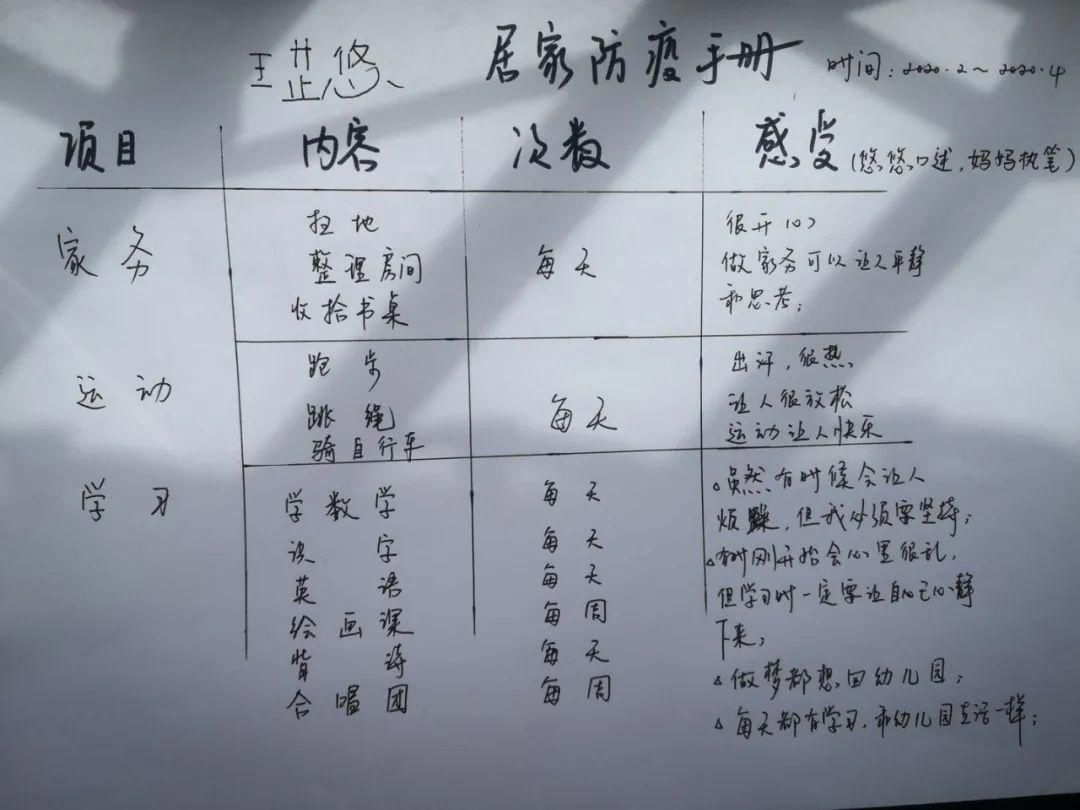 王芷悠、 居家防疫手册 时间：2020.2～2020.4
项目 内容 次数 感受(悠悠口述,妈妈执笔)
家务 扫地 每天 很开心
整理房间 做家务可以让人平静
收拾书桌 和思考；
运动 跑步 每天 出汗，很热、
跳绳 让人很放松
骑自行车 运动让人快乐
学习 学数学 每天 △虽然有时候会让人
识字 每天 烦躁，但我必须要坚持；
英语 每天 △有时刚开始会心里很乱，
绘画课 每周 但学习时一定要让自己心静
背诗 每天 下来；
合唱团 每周 △做梦都想回幼儿园；
△每天都有学习，和幼儿园生活一样；